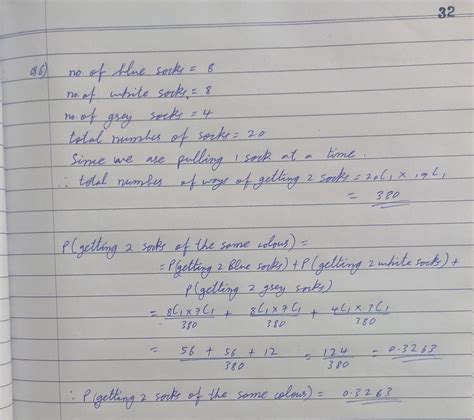 32
Q6) no. of blue socks = 8
no. of white socks = 8
no. of grey socks = 4
total number of socks = 20
Since we are pulling 1 sock at a time.
∴ total number of ways of getting 2 socks = 20C1 × 19C1
= 380
P(getting 2 socks of the same colour) =
= P(getting 2 blue socks) + P(getting 2 white socks) +
P(getting 2 grey socks)
= 8C1 × 7C1 / 380 + 8C1 × 7C1 / 380 + 4C1 × 3C1 / 380
= 56 + 56 + 12 / 380 = 124 / 380 = 0.3263
∴ P(getting 2 socks of the same colour) = 0.3263